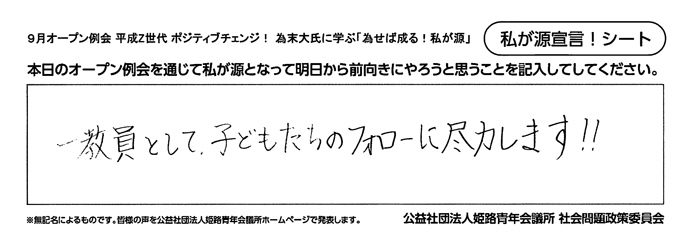 9月オープン例会 平成Z世代 ポジティブチェンジ! 為末大氏に学ぶ「為せば成る!私が源」
私が源宣言!シート
本日のオープン例会を通じて私が源となって明日から前向きにやろうと思うことを記入してしてください。
一教員として、子どもたちのフォローに尽力します!!
※無記名によるものです。皆様の声を公益社団法人姫路青年会議所ホームページで発表します。
公益社団法人姫路青年会議所 社会問題政策委員会